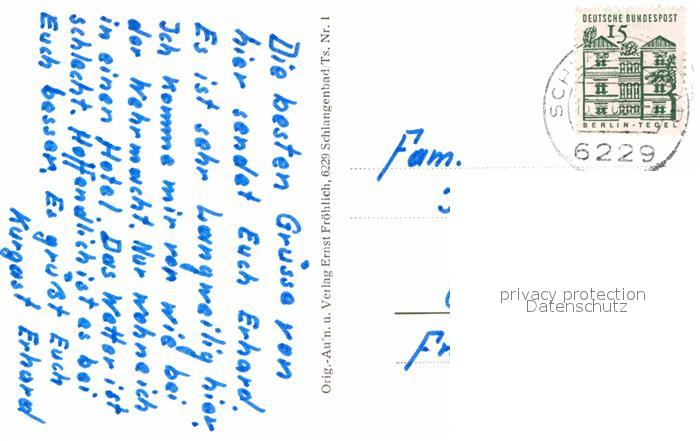 Die besten Grüsse von
hier sendet Euch Erhard.
Es ist sehr Langweilig hier.
Ich komme mir vor wie bei
der Wehrmacht. Nur wohne ich
in einen Hotel. Das Wetter ist
schlecht. Hoffendlich ist es bei
Euch besser. Es grüßt Euch
Kurgast Erhard
Orig.-Aufn. u. Verlag Ernst Fröhlich, 6229 Schlangenbad/Ts. Nr. 1
DEUTSCHE BUNDESPOST
15
BERLIN-TEGEL
6229
Fam.
privacy protection
Datenschutz